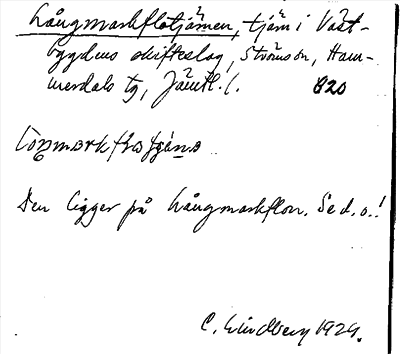 Långmarkflotjämen, tjärn i Väst-
bygdens skifteslag, Strömsön, Ham-
merdals tg, Jämtl. l. 820
Den ligger på Långmarkflon. Se d. o.!
C. Lindberg 1929.